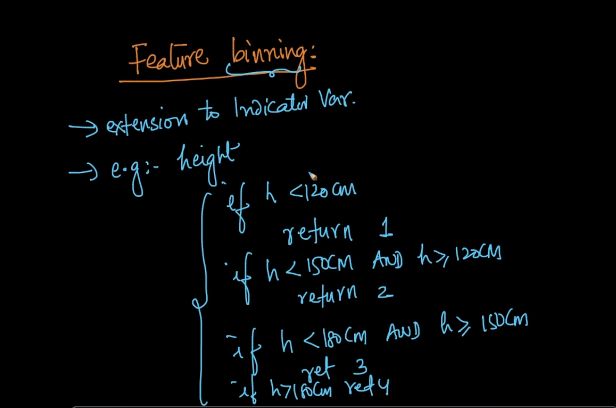 Feature binning:
→ extension to Indicator Var.
→ e.g:- height
if h < 120cm
return 1
if h < 150cm AND h ≥ 120cm
return 2
if h < 180cm AND h ≥ 150cm
ret 3
if h > 180cm ret 4